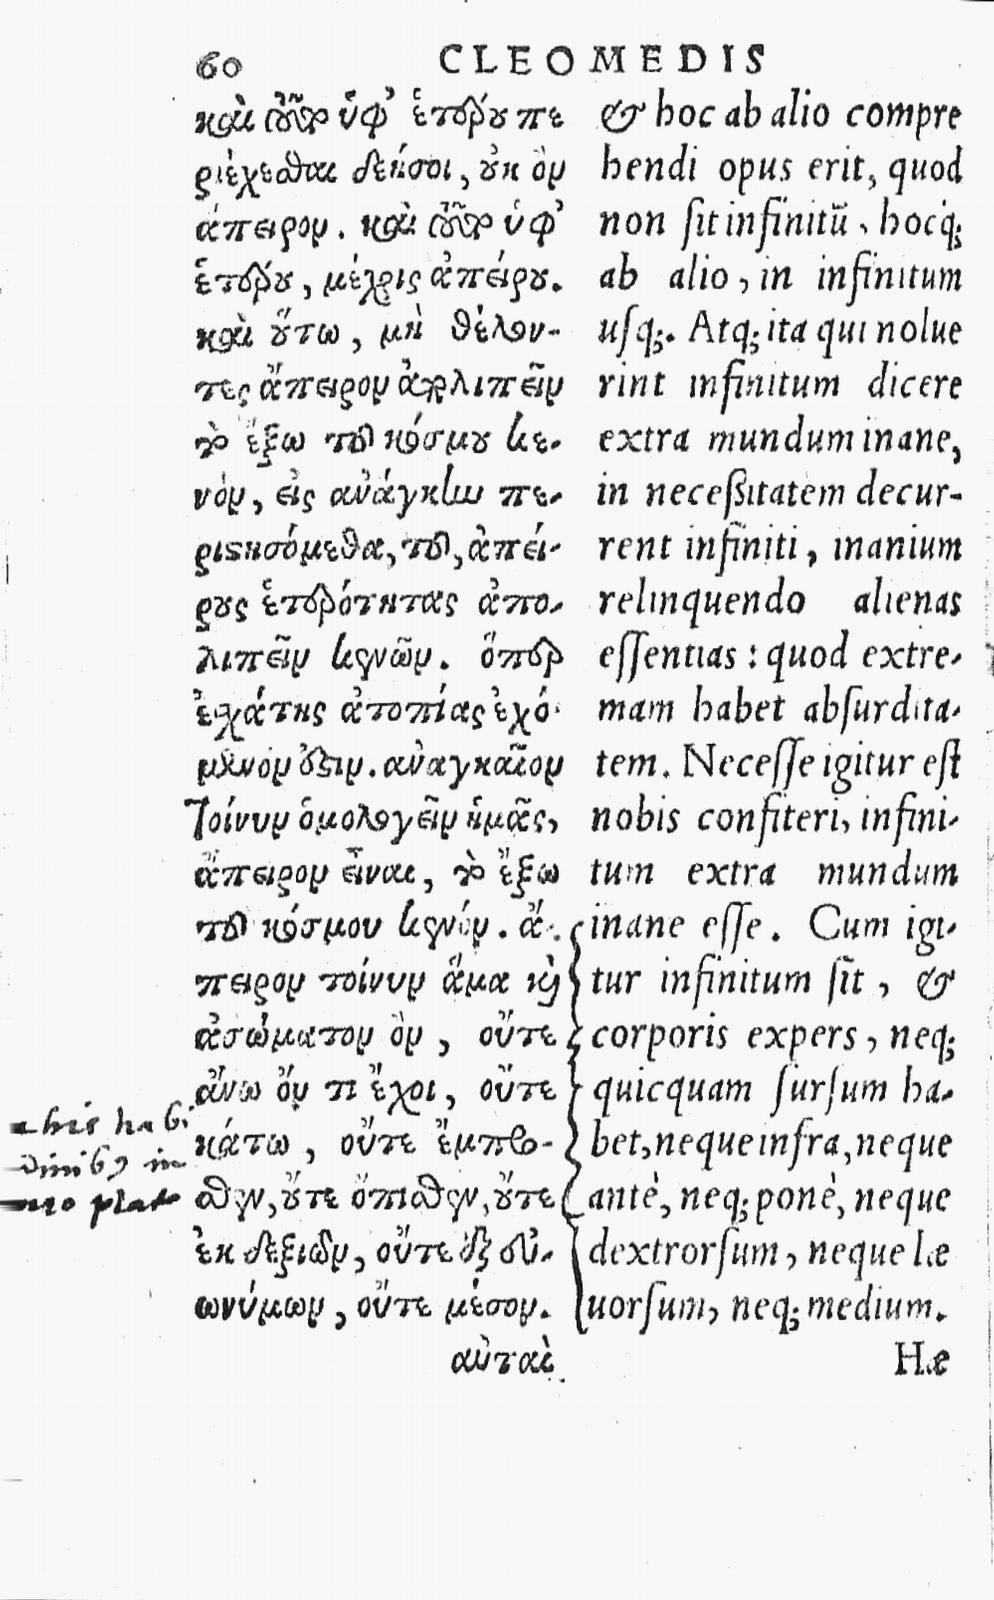 60 CLEOMEDIS
καὶ τοῦτο ὑφ᾽ ἑτέρου πε
ριέχεσθαι δεήσοι, οὐκ ὂν
ἄπειρον. καὶ τοῦτο ὑφ᾽
ἑτέρου, μέχρις ἀπείρου.
καὶ οὕτω, μὴ θέλον-
τες ἄπειρον ἀπολιπεῖν
τὸ ἔξω τοῦ κόσμου κε-
νὸν, εἰς ἀνάγκην πε-
ριστησόμεθα, τοῦ, ἀπεί-
ρους ἑτερότητας ἀπο-
λιπεῖν κενῶν. ὅπερ
ἐσχάτης ἀτοπίας ἐχό-
μενόν ἐστιν. ἀναγκαῖον
τοίνυν ὁμολογεῖν ἡμᾶς,
ἄπειρον εἶναι, τὸ ἔξω
τοῦ κόσμου κενόν. ἄ-
πειρον τοίνυν ἅμα καὶ
ἀσώματον ὂν, οὔτε
ἄνω ὄν τι ἔχοι, οὔτε
κάτω, οὔτε ἔμπρο-
σθεν, οὔτε ὄπισθεν, οὔτε
ἐκ δεξιῶν, οὔτε ἐξ εὐ-
ωνύμων, οὔτε μέσον.
αὗται
& hoc ab alio compre
hendi opus erit, quod
non sit infinitũ, hocq;
ab alio, in infinitum
usq;. Atq; ita qui nolue
rint infinitum dicere
extra mundum inane,
in necessitatem decur-
rent infiniti, inanium
relinquendo alienas
essentias: quod extre-
mam habet absurdita-
tem. Necesse igitur est
nobis confiteri, infini-
tum extra mundum
inane esse. Cum igi-
tur infinitum sit, &
corporis expers, neq;
quicquam sursum ha-
bet, neque infra, neque
antè, neq; ponè, neque
dextrorsum, neque læ
uorsum, neq; medium.
Hæ
his habi
in
plat